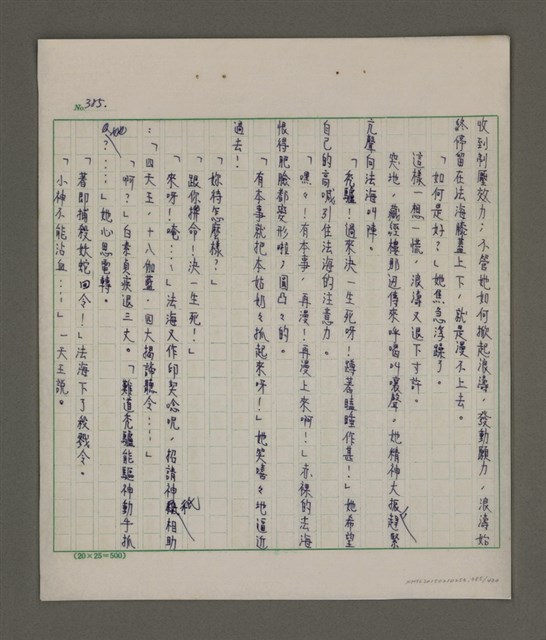 No. 315.
收到制壓效力;不管她如何掀起浪濤,發動願力,浪濤始
終停留在法海膝蓋上下,就是漫不上去。
「如何是好?」她焦急浮躁了。
這樣一想一慌,浪濤又退下寸許。
突地,藏經樓那边傳來呼喝叫嚷聲。她精神大振,趕緊
亢聲向法海叫陣。
「禿驢!過來決一生死呀!蹲著瞌睡作甚!」她希望
自己的高喊引住法海的注意力。
「嘿々!有本事,再漫!再漫上來啊!」赤裸的法海
恨得肥臉都變形啦,圓凸々的。
「有本事就把本姑奶々抓起來呀!」她笑嘻々地逼近
過去!
「妳待怎麼樣?」
「跟你拚命!決一生死!」
「來呀!唵:::」法海又作印契唸咒,招請神祇相助
:「四天王,十八伽藍,四大揭諦聽令:::」
「啊?」白素貞疾退三丈。「難道禿驢能驅神動手抓
她?:::」她心思電轉。
「著即捕殺妖蛇回令!」法海下了殺戮令。
「小神不能沾血:::」一天王說。
(20×25=500)